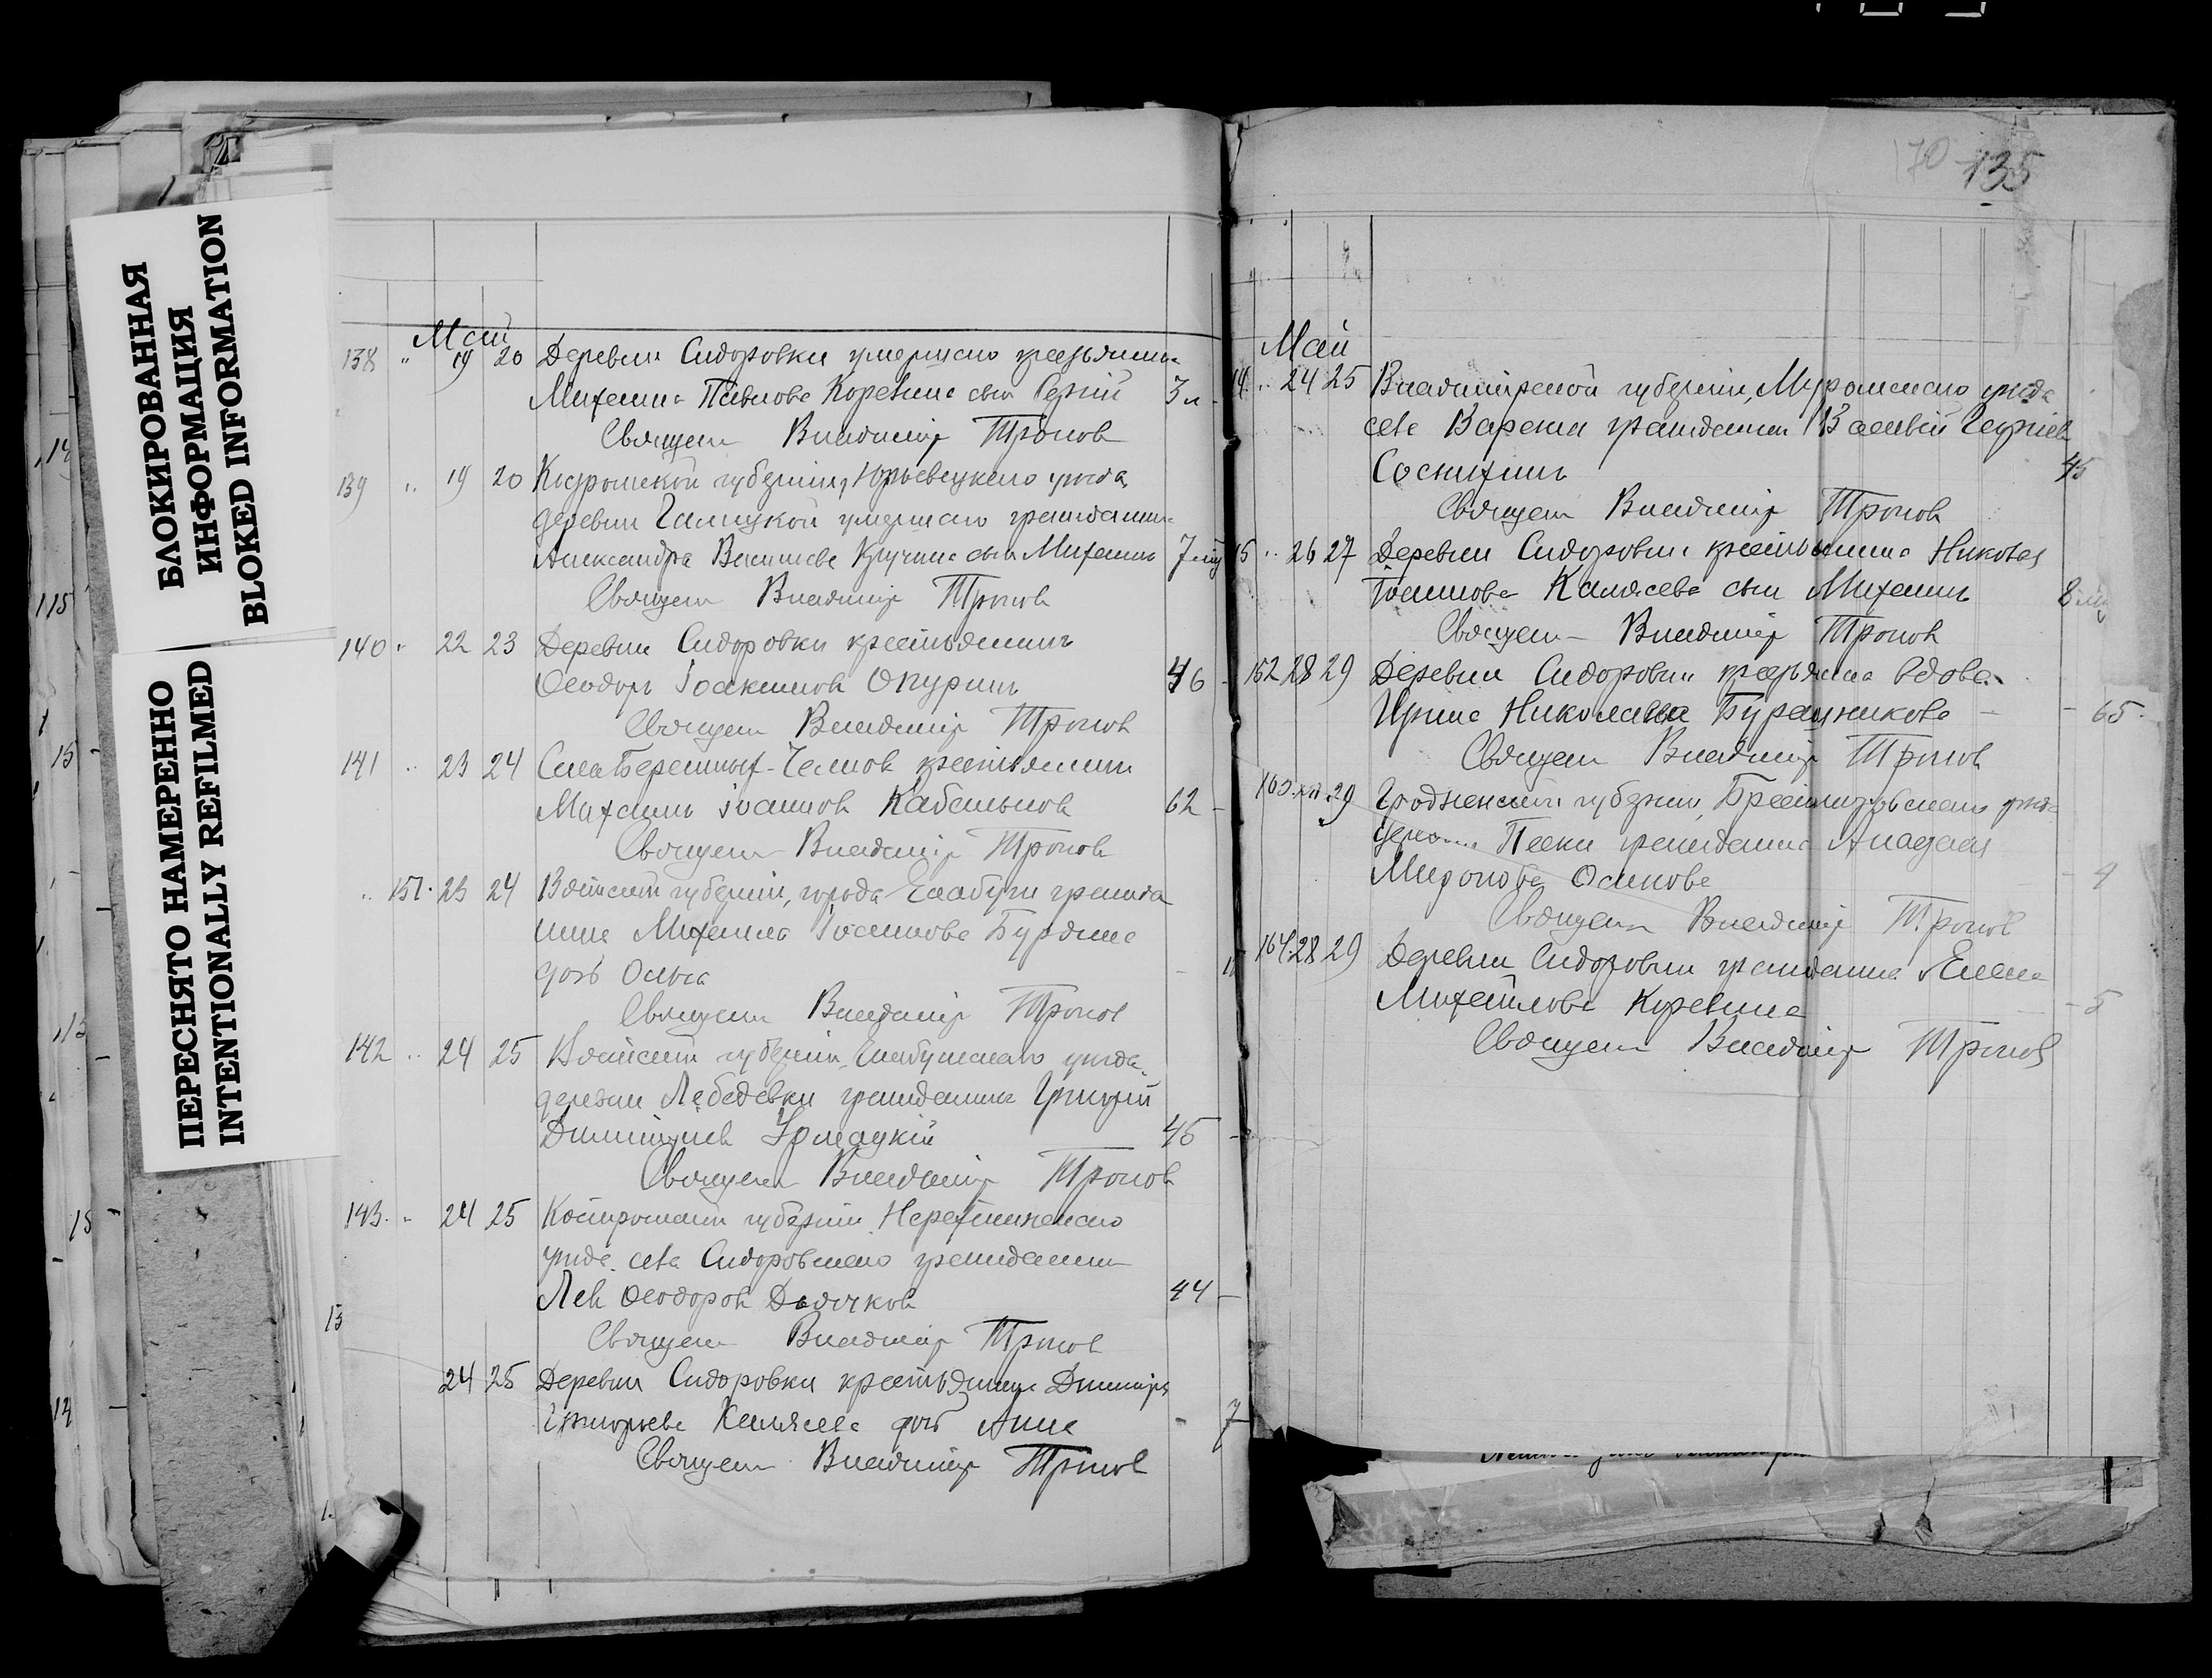 БЛОКИРОВАННАЯ
ИНФОРМАЦИЯ
BLOKED INFORMATION
ПЕРЕСНЯТО НАМЕРЕННО
INTENTIONALLY REFILMED
Май
138 " 19 20 Деревни Сидоровки умершаго крестьянина
Михаила Павлова Коревина сын Сергій 3 н
Священ Владимір Тронов
139 " 19 20 Костромской губерніи, Юрьевецкаго уезда,
деревни Галицкой умершаго гражданина
Александра Васильева Кручина сын Михаилъ 7 мц
Священ Владимір Тронов
140 " 22 23 Деревни Сидоровки крестьянинъ
Феодоръ Іоакимов Опуринъ 46
Священ Владимір Тронов
141 " 23 24 Села Бережных-Челнов крестьянин
Михаилъ Іоаннов Кабальнов 62 -
Священ Владимір Тронов
" 151. 23 24 Вятской губерніи, города Елабуги гражда
нина Михаила Іоаннова Бурдина
дочь Ольга
Священ Владимір Тронов
142 " 24 25 Вятской губерніи, Елабужскаго уезда
деревни Лебедевки гражданин Григорій
Димитріев 45 -
Священ Владимір Тронов
143. " 24 25 Костромской губерніи Нерехтинскаго
уезда. села Сидоровскаго гражданин
Лев Феодоров Дьячков 44 -
Священ Владимір Тронов
24 25 Деревни Сидоровки крестьянина Димитрія
Григорьева Калясева дочь Анна - 7
Священ Владимір Тронов
170 135
Май
14 " 24 25 Владимірской губерніи, Муромскаго уезда
села Варежи гражданин Василій Георгіев
Соснихинъ 45
Священ Владимір Тронов
15 " 26 27 Деревни Сидоровки крестьянина Николая
Іоаннова Калясева сын Михаилъ 8 мц
Священ Владимір Тронов
152 28 29 Деревни Сидоровки крестьянина вдова
Ирина Николаевна Бурашникова - - 65.
Священ Владимір Тронов
29 Гродненской губерніи, Брестлитовскаго уезда
Пески гражданина
Миронова Осипова - 4
Священ Владимір Тронов
164. 28 29 Деревни Сидоровки гражданина Елена
Михайлова Коревина - 5
Священ Владимір Тронов